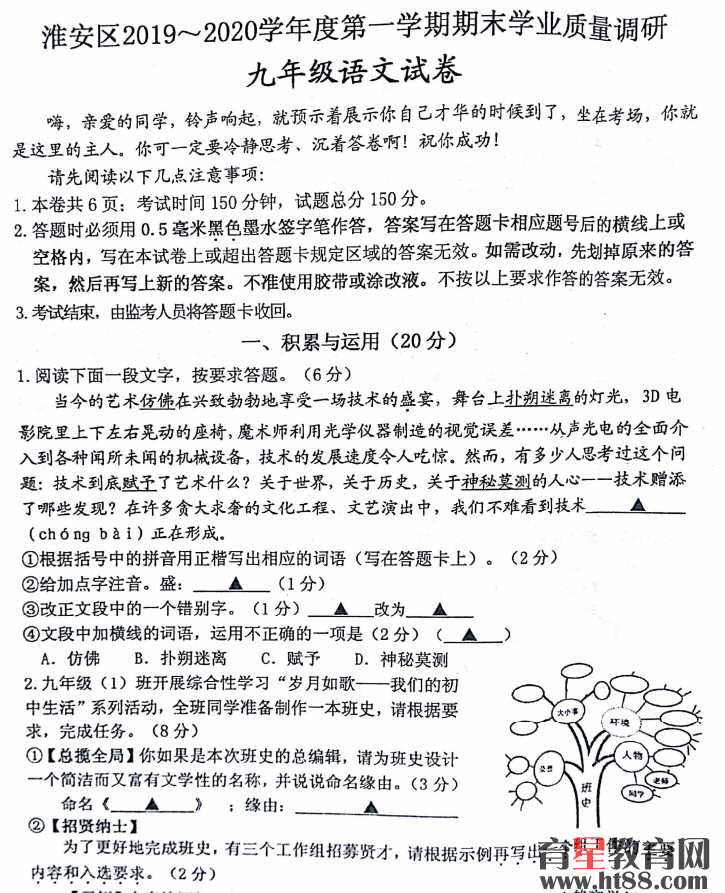 淮安区2019～2020学年度第一学期期末学业质量调研
九年级语文试卷
嗨，亲爱的同学，铃声响起，就预示着展示你自己才华的时候到了，坐在考场，你就
是这里的主人。你可一定要冷静思考、沉着答卷啊！祝你成功！
请先阅读以下几点注意事项：
1.本卷共6页；考试时间150分钟，试题总分150分。
2.答题时必须用0.5毫米黑色墨水签字笔作答，答案写在答题卡相应题号后的横线上或
空格内，写在本试卷上或超出答题卡规定区域的答案无效。如需改动，先划掉原来的答
案，然后再写上新的答案。不准使用胶带或涂改液。不按以上要求作答的答案无效。
3.考试结束，由监考人员将答题卡收回。
一、积累与运用（20分）
1.阅读下面一段文字，按要求答题。（6分）
当今的艺术仿佛在兴致勃勃地享受一场技术的盛宴，舞台上扑朔迷离的灯光，3D电
影院里上下左右晃动的座椅，魔术师利用光学仪器制造的视觉误差……从声光电的全面介
入到各种闻所未闻的机械设备，技术的发展速度令人吃惊。然而，有多少人思考过这个问
题：技术到底赋予了艺术什么？关于世界，关于历史，关于神秘莫测的人心——技术赠添
了哪些发现？在许多贪大求奢的文化工程、文艺演出中，我们不难看到技术▲
(chóng bài)正在形成。
①根据括号中的拼音用正楷写出相应的词语（写在答题卡上）。（2分）
②给加点字注音。盛：▲（1分）
③改正文段中的一个错别字。（1分）▲改为▲
④文段中加横线的词语，运用不正确的一项是（2分）（▲）
A．仿佛 B．扑朔迷离 C．赋予 D．神秘莫测
2.九年级（1）班开展综合性学习“岁月如歌——我们的初
中生活”系列活动，全班同学准备制作一本班史，请根据要
求，完成任务。（8分）
①【总揽全局】你如果是本次班史的总编辑，请为班史设计
一个简洁而又富有文学性的名称，并说说命名缘由。（3分）
命名《▲》；缘由：▲
②【招贤纳士】
为了更好地完成班史，有三个工作组招募贤才，请根据示例再写出
内容和入选要求。（2分）
大小事
环境
人物
老师
同学
班史
育星教育网
www.ht88.com